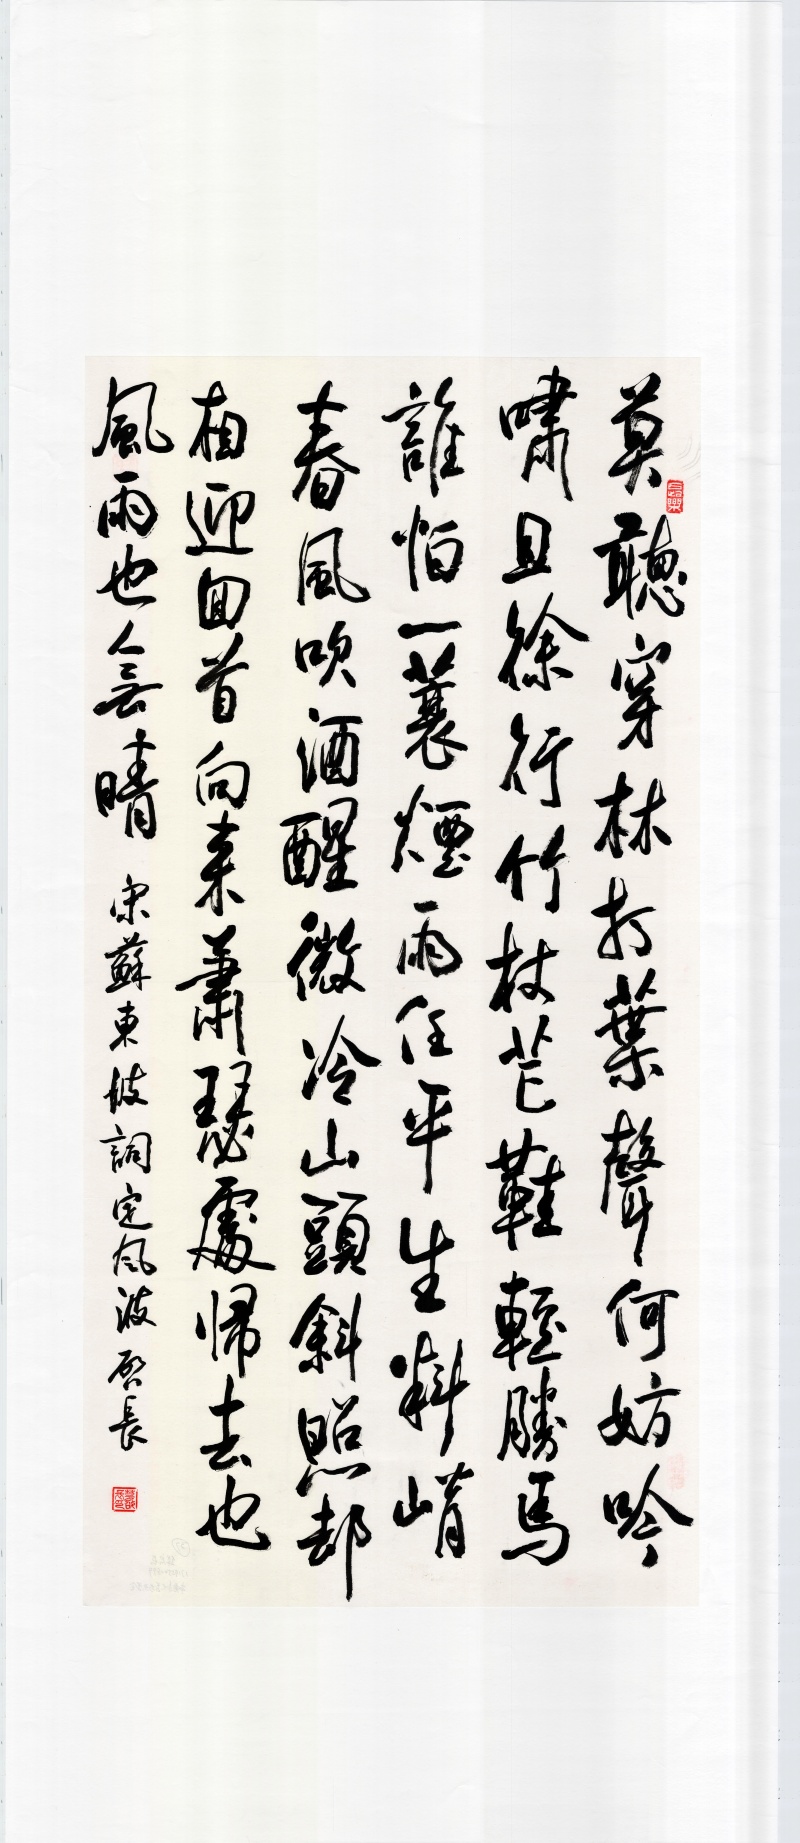 莫聽穿林打葉聲何妨吟
嘯且徐行竹杖芒鞋輕勝馬
誰怕一蓑煙雨任平生料峭
春風吹酒醒微冷山頭斜照却
相迎回首向来蕭瑟處歸去也
風雨也無晴
宋蘇東坡詞定风波 啓長